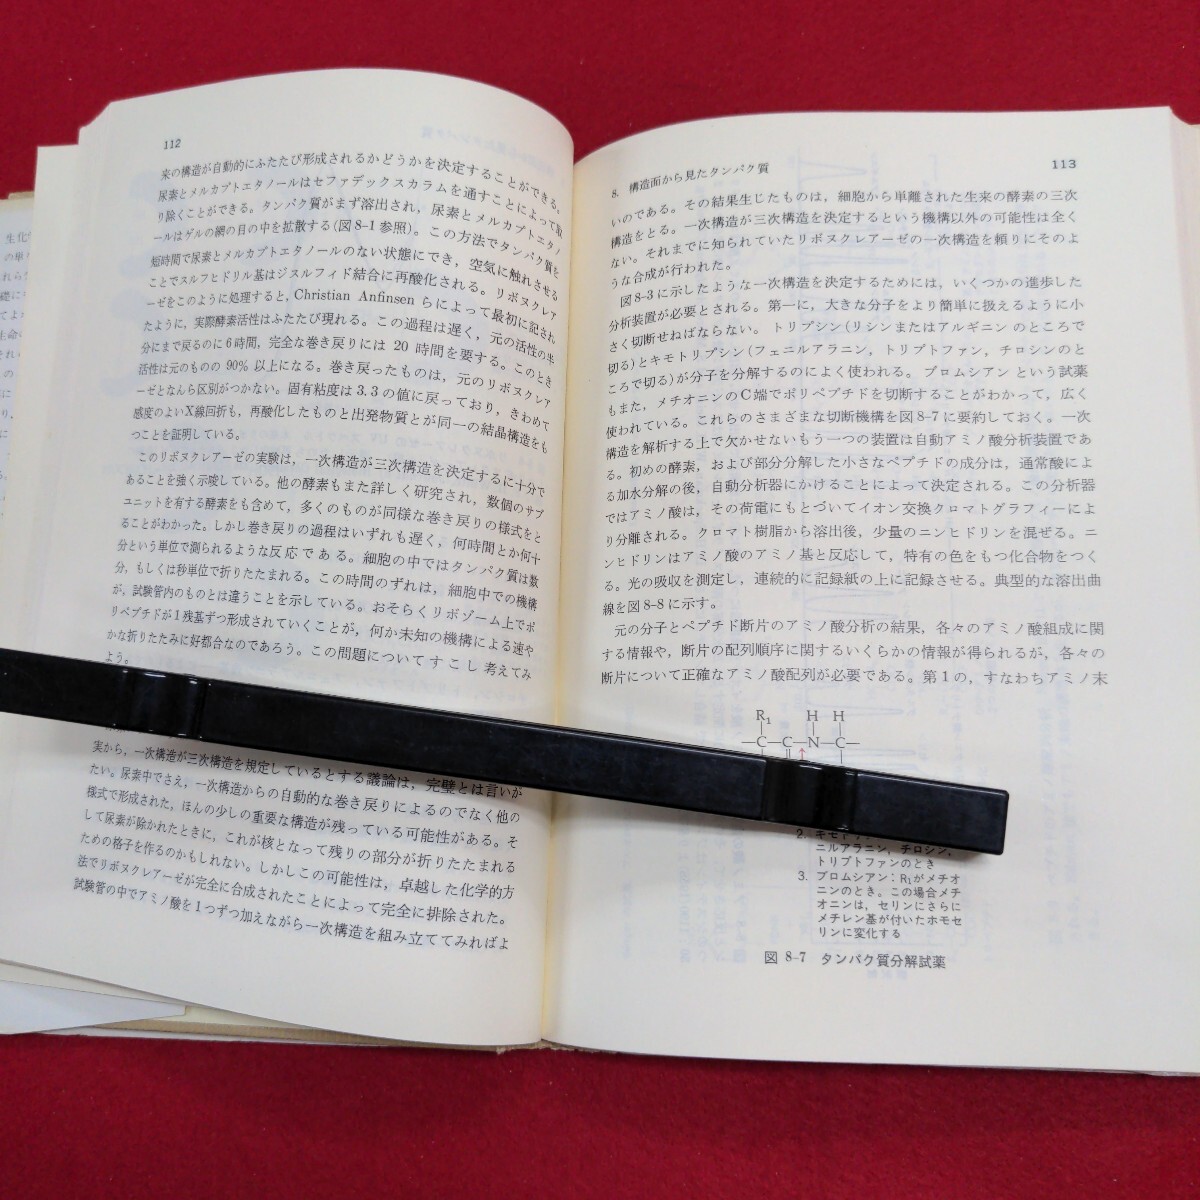 112
来の構造が自動的にふたたび形成されるかどうかを決定することができる。
尿素とメルカプトエタノールはセファデックスカラムを通すことによって取
り除くことができる。タンパク質がまず溶出され，尿素とメルカプトエタノ
ールはゲルの網の目の中を拡散する(図8-1参照)。この方法でタンパク質を
短時間で尿素とメルカプトエタノールのない状態にでき，空気に触れさせる
ことでスルフヒドリル基はジスルフィド結合に再酸化される。リボヌクレア
ーゼをこのように処理すると，Christian Anfinsen らによって最初に記され
たように，実際酵素活性はふたたび現れる。この過程は遅く，元の活性の半
分にまで戻るのに6時間，完全な巻き戻りには 20 時間を要する。このとき
活性は元のものの 90% 以上になる。巻き戻ったものは，元のリボヌクレア
ーゼとなんら区別がつかない。固有粘度は 3.3 の値に戻っており，きわめて
感度のよいX線回折も，再酸化したものと出発物質とが同一の結晶構造をも
つことを証明している。
このリボヌクレアーゼの実験は，一次構造が三次構造を決定するに十分で
あることを強く示唆している。他の酵素もまた詳しく研究され，数個のサブ
ユニットを有する酵素をも含めて，多くのものが同様な巻き戻りの様式をと
ることがわかった。しかし巻き戻りの過程はいずれも遅く，何時間とか何十
分という単位で測られるような反応である。細胞の中ではタンパク質は数
分，もしくは秒単位で折りたたまれる。この時間のずれは，細胞中での機構
が，試験管内のものとは違うことを示している。おそらくリボゾーム上でポ
リペプチドが1残基ずつ形成されていくことが，何か未知の機構による速や
かな折りたたみに好都合なのであろう。この問題についてすこし考えてみ
よう。
実から，一次構造が三次構造を規定しているとする議論は，完璧とは言いが
たい。尿素中でさえ，一次構造からの自動的な巻き戻りによるのでなく他の
様式で形成された，ほんの少しの重要な構造が残っている可能性がある。そ
して尿素が除かれたときに，これが核となって残りの部分が折りたたまれる
ための格子を作るのかもしれない。しかしこの可能性は，卓越した化学的方
法でリボヌクレアーゼが完全に合成されたことによって完全に排除された。
試験管の中でアミノ酸を1つずつ加えながら一次構造を組み立ててみればよ
8. 構造面から見たタンパク質 113
いのである。その結果生じたものは，細胞から単離された生来の酵素の三次
構造をとる。一次構造が三次構造を決定するという機構以外の可能性は全く
ない。それまでに知られていたリボヌクレアーゼの一次構造を頼りにそのよ
うな合成が行われた。
図8-3に示したような一次構造を決定するためには，いくつかの進歩した
分析装置が必要とされる。第一に，大きな分子をより簡単に扱えるように小
さく切断せねばならない。トリプシン(リシンまたはアルギニン のところで
切る)とキモトリプシン(フェニルアラニン，トリプトファン，チロシンのと
ころで切る)が分子を分解するのによく使われる。ブロムシアン という試薬
もまた，メチオニンのC端でポリペプチドを切断することがわかって，広く
使われている。これらのさまざまな切断機構を図8-7に要約しておく。一次
構造を解析する上で欠かせないもう一つの装置は自動アミノ酸分析装置であ
る。初めの酵素，および部分分解した小さなペプチドの成分は，通常酸によ
る加水分解の後，自動分析器にかけることによって決定される。この分析器
ではアミノ酸は，その荷電にもとづいてイオン交換クロマトグラフィーによ
り分離される。クロマト樹脂から溶出後，少量のニンヒドリンを混ぜる。ニ
ンヒドリンはアミノ酸のアミノ基と反応して，特有の色をもつ化合物をつく
る。光の吸収を測定し，連続的に記録紙の上に記録させる。典型的な溶出曲
線を図8-8に示す。
元の分子とペプチド断片のアミノ酸分析の結果，各々のアミノ酸組成に関
する情報や，断片の配列順序に関するいくらかの情報が得られるが，各々の
断片について正確なアミノ酸配列が必要である。第1の，すなわちアミノ末
R₁ H H
—C—C—N—C—
ニルアラニン，チロシン，
トリプトファンのとき
3. ブロムシアン：R₁がメチオ
ニンのとき。この場合メチ
オニンは，セリンにさらに
メチレン基が付いたホモセ
リンに変化する
図 8-7 タンパク質分解試薬